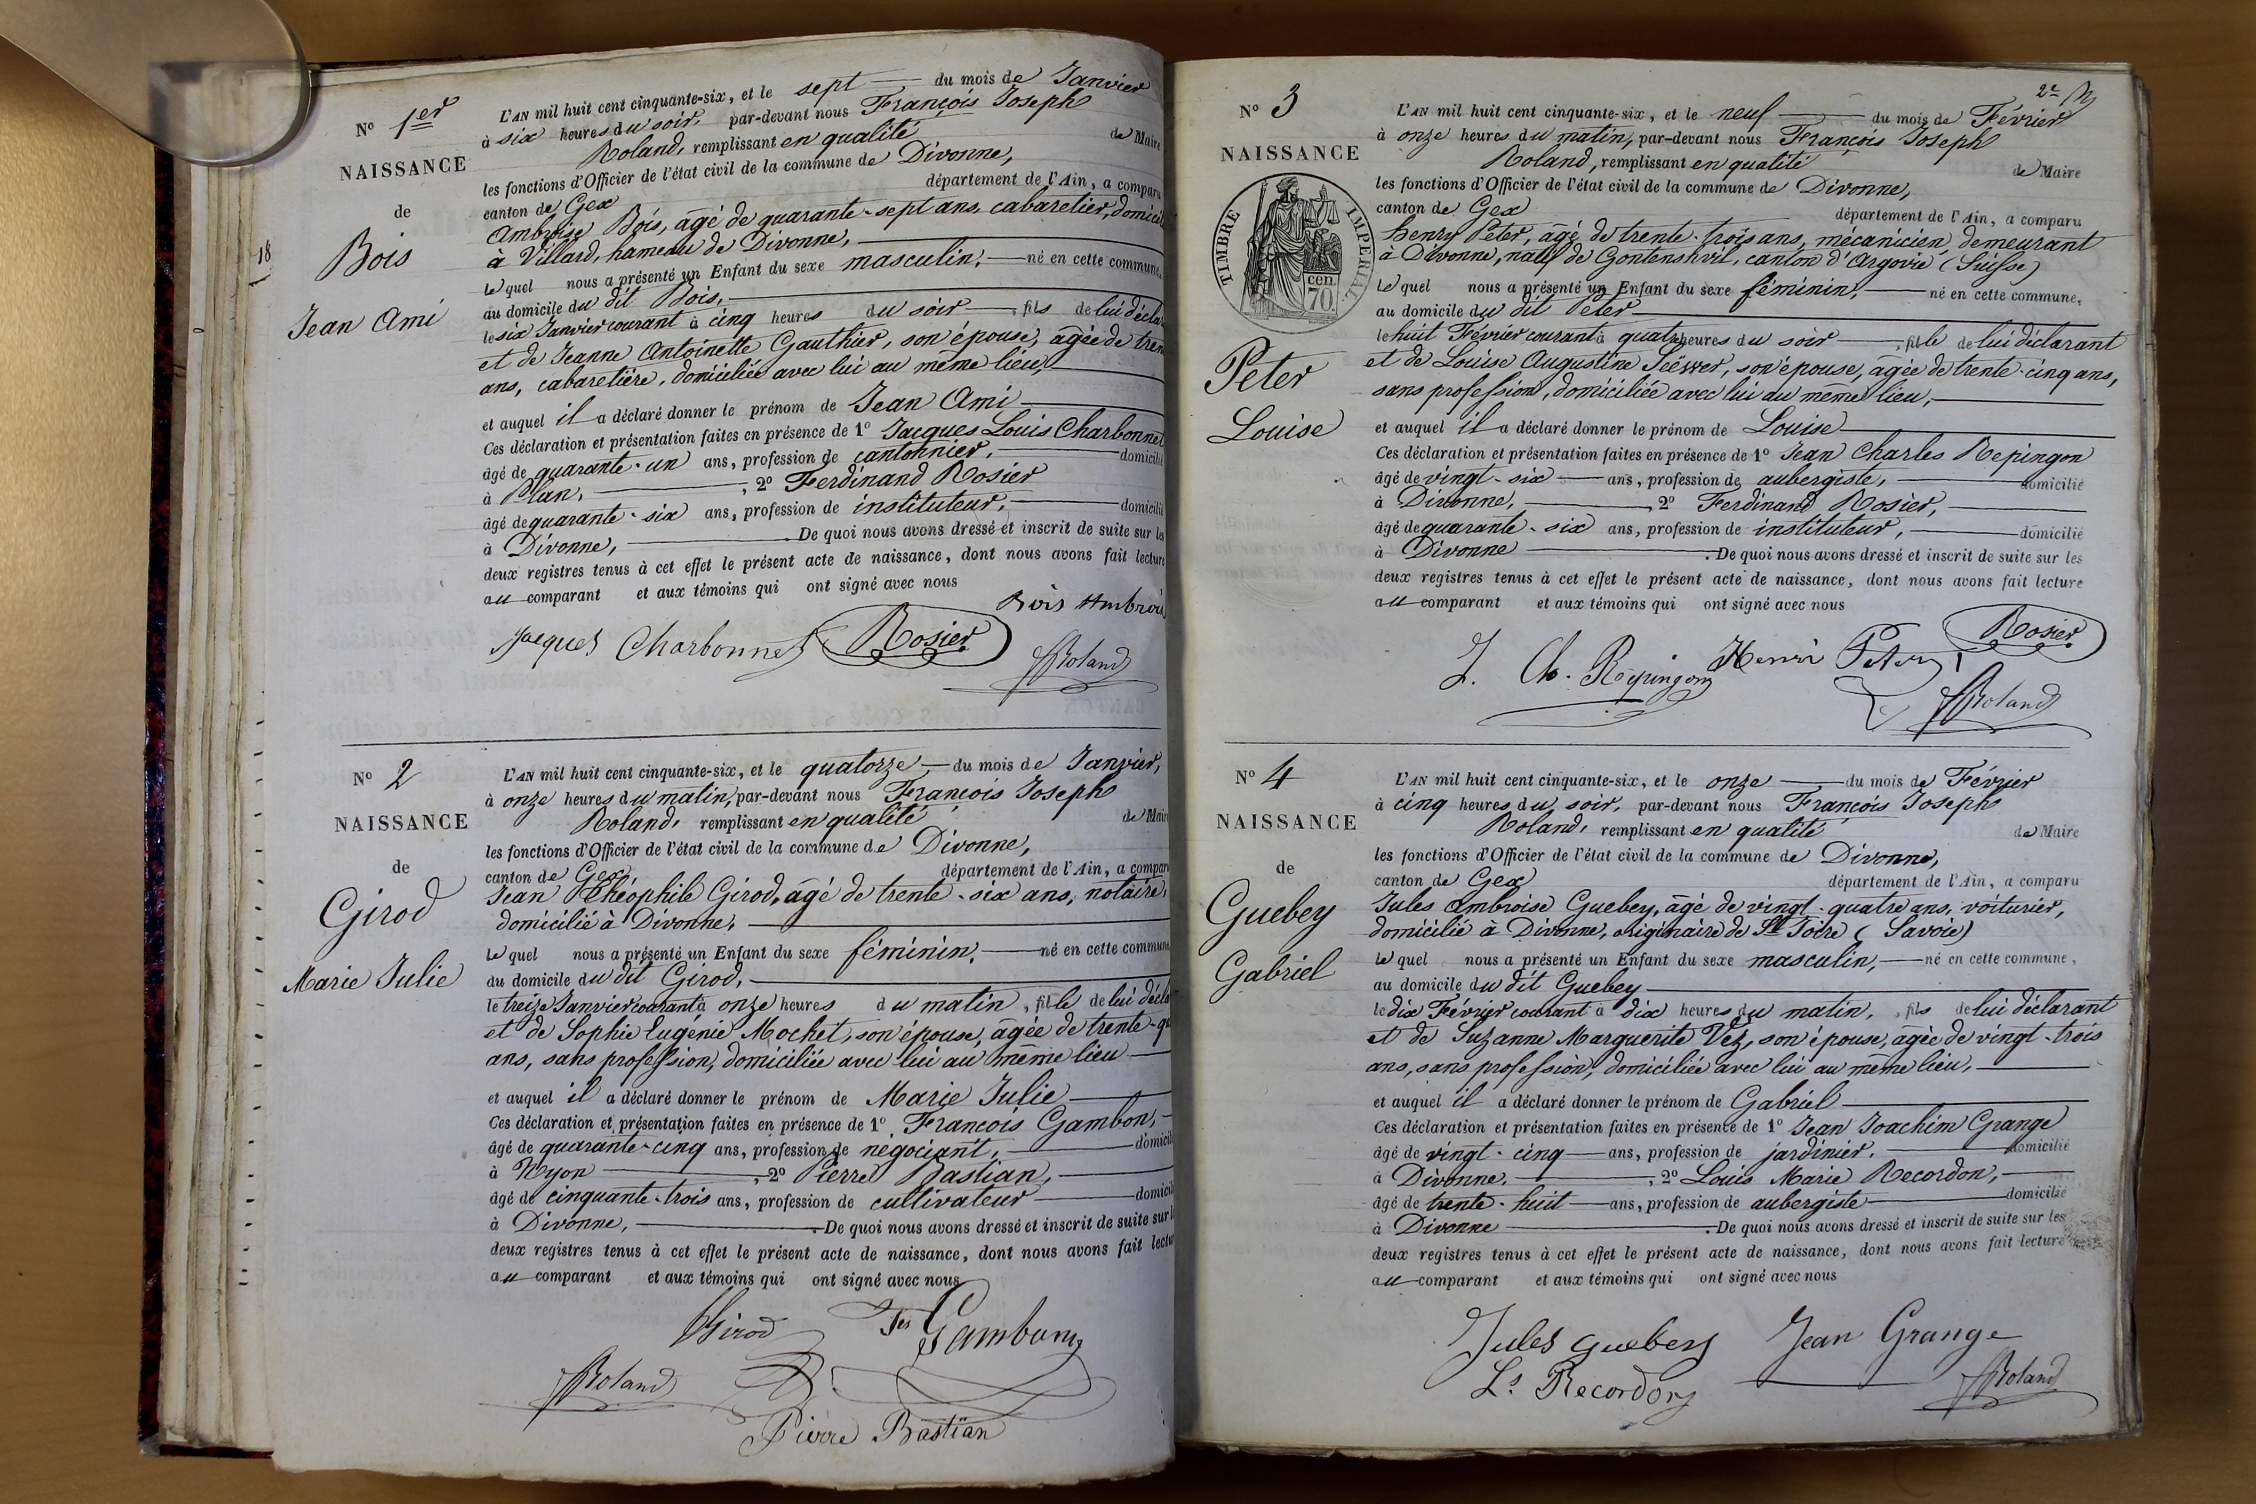 18
Nº 1er
NAISSANCE
de
Bois
Jean Ami
L'AN mil huit cent cinquante-six, et le sept du mois de Janvier
à six heures du soir, par-devant nous François Joseph
Roland, remplissant en qualité de Maire
les fonctions d'Officier de l'état civil de la commune de Divonne,
canton de Gex département de l'Ain, a comparu
Ambroise Bois, âgé de quarante-sept ans, cabaretier, domicil
à Villard, hameau de Divonne,
lequel nous a présenté un Enfant du sexe masculin, né en cette commune,
au domicile du dit Bois,
le six Janvier courant à cinq heures du soir, fils de lui décla
et de Jeanne Antoinette Gauthier, son épouse, âgée de tren
ans, cabaretière, domiciliée avec lui au même lieu,
et auquel il a déclaré donner le prénom de Jean Ami
Ces déclaration et présentation faites en présence de 1º Jacques Louis Charbonnet
âgé de quarante-un ans, profession de cantonnier, domicilié
à Plan, , 2º Ferdinand Rosier
âgé de quarante-six ans, profession de instituteur, domicilié
à Divonne, . De quoi nous avons dressé et inscrit de suite sur les
deux registres tenus à cet effet le présent acte de naissance, dont nous avons fait lecture
au comparant et aux témoins qui ont signé avec nous
Bois Ambrois
Jacques Charbonnet Rosier
Roland
Nº 2
NAISSANCE
de
Girod
Marie Julie
L'AN mil huit cent cinquante-six, et le quatorze du mois de Janvier,
à onze heures du matin, par-devant nous François Joseph
Roland, remplissant en qualité de Mair
les fonctions d'Officier de l'état civil de la commune de Divonne,
canton de Gex département de l'Ain, a compar
Jean Théophile Girod, âgé de trente-six ans, notaire,
domicilié à Divonne,
lequel nous a présenté un Enfant du sexe féminin, né en cette commune
au domicile du dit Girod,
le treize Janvier courant à onze heures du matin, fille de lui décla
et de Sophie Eugénie Mochet, son épouse, âgée de trente-qu
ans, sans profession, domiciliée avec lui au même lieu
et auquel il a déclaré donner le prénom de Marie Julie
Ces déclaration et présentation faites en présence de 1º François Gambon,
âgé de quarante-cinq ans, profession de négociant, domicil
à Nyon , 2º Pierre Bastian,
âgé de cinquante-trois ans, profession de cultivateur domicil
à Divonne, . De quoi nous avons dressé et inscrit de suite sur l
deux registres tenus à cet effet le présent acte de naissance, dont nous avons fait lectu
au comparant et aux témoins qui ont signé avec nous
Girod Fçs Gambon
Roland
Pierre Bastian
2e
Nº 3
NAISSANCE
TIMBRE IMPERIAL
cen.
70.
Peter
Louise
L'AN mil huit cent cinquante-six, et le neuf du mois de Février
à onze heures du matin, par-devant nous François Joseph
Roland, remplissant en qualité de Maire
les fonctions d'Officier de l'état civil de la commune de Divonne,
canton de Gex département de l'Ain, a comparu
henry Peter, âgé de trente-trois ans, mécanicien, demeurant
à Divonne, natif de Gontenshvil, canton d'Argovie (Suisse)
lequel nous a présenté un Enfant du sexe féminin, né en cette commune,
au domicile du dit Peter
le huit Février courant à quatre heures du soir, fille de lui déclarant
et de Louise Augustine, son épouse, âgée de trente-cinq ans,
sans profession, domiciliée avec lui au même lieu,
et auquel il a déclaré donner le prénom de Louise
Ces déclaration et présentation faites en présence de 1º Jean Charles Repingon
âgé de vingt-six ans, profession de aubergiste, domicilié
à Divonne, , 2º Ferdinand Rosier,
âgé de quarante-six ans, profession de instituteur, domicilié
à Divonne . De quoi nous avons dressé et inscrit de suite sur les
deux registres tenus à cet effet le présent acte de naissance, dont nous avons fait lecture
au comparant et aux témoins qui ont signé avec nous
J. Ch. Repingon Henri Peter Rosier
Roland
Nº 4
NAISSANCE
de
Guebey
Gabriel
L'AN mil huit cent cinquante-six, et le onze du mois de Février
à cinq heures du soir, par-devant nous François Joseph
Roland, remplissant en qualité de Maire
les fonctions d'Officier de l'état civil de la commune de Divonne,
canton de Gex département de l'Ain, a comparu
Jules Ambroise Guebey, âgé de vingt-quatre ans, voiturier,
domicilié à Divonne, originaire de St Joire (Savoie)
lequel nous a présenté un Enfant du sexe masculin, né en cette commune,
au domicile du dit Guebey
le dix Février courant à dix heures du matin, fils de lui déclarant
et de Suzanne Marguerite Vez, son épouse, âgée de vingt-trois
ans, sans profession, domiciliée avec lui au même lieu,
et auquel il a déclaré donner le prénom de Gabriel
Ces déclaration et présentation faites en présence de 1º Jean Joachim Grange
âgé de vingt-cinq ans, profession de jardinier, domicilié
à Divonne, , 2º Louis Marie Recordon,
âgé de trente-huit ans, profession de aubergiste domicilié
à Divonne . De quoi nous avons dressé et inscrit de suite sur les
deux registres tenus à cet effet le présent acte de naissance, dont nous avons fait lecture
au comparant et aux témoins qui ont signé avec nous
Jules Guebey Jean Grange
Ls Recordon Roland